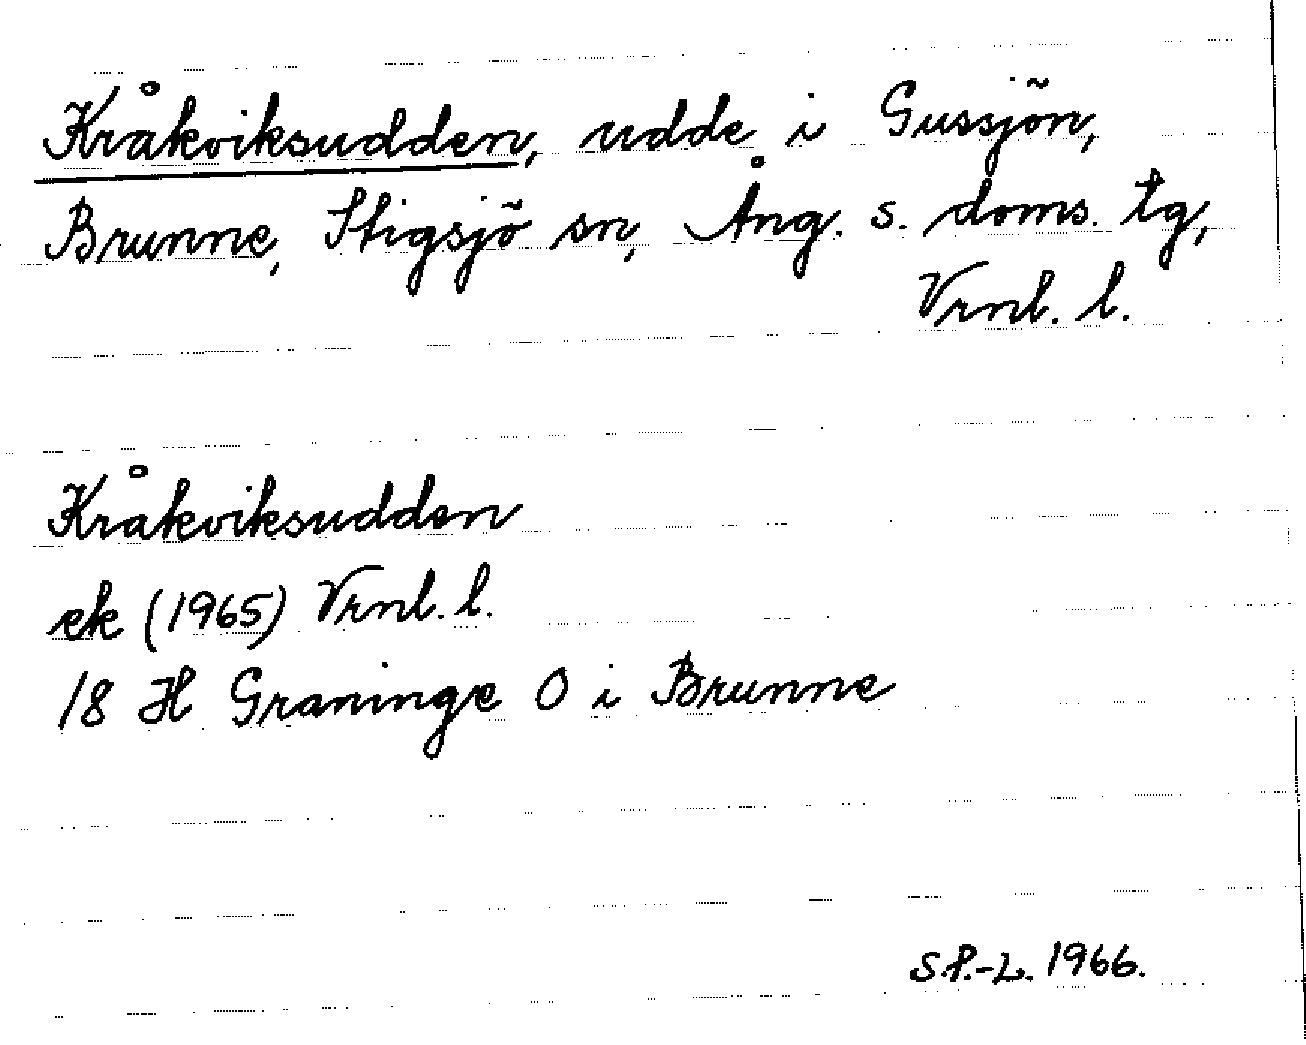 Kråkviksudden, udde i Gussjön,
Brunne, Stigsjö sn, Ång. s. doms. tg,
Vrnl. l.
Kråkviksudden
ek (1965) Vrnl. l.
18 H Graninge O i Brunne
S P.-L. 1966.